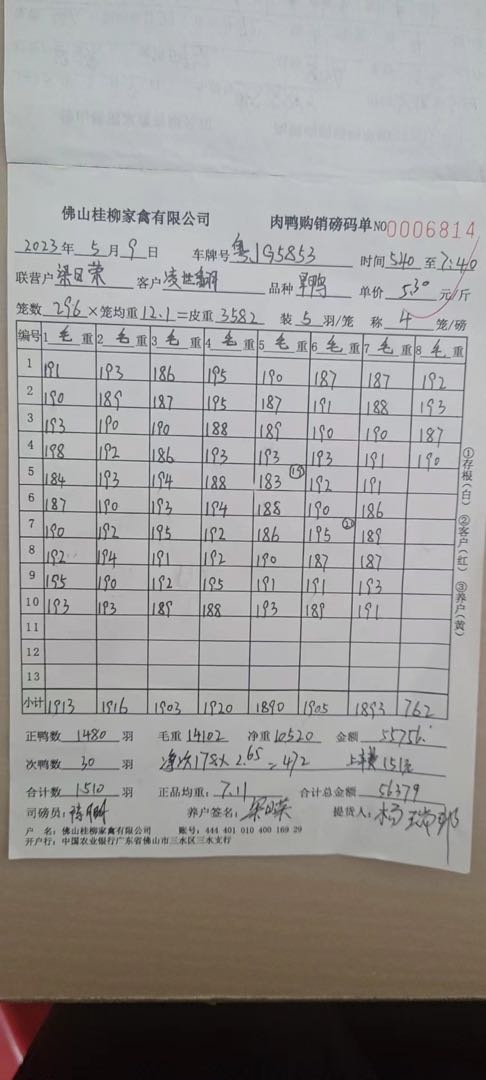 佛山桂柳家禽有限公司 肉鸭购销磅码单 NO 0006814
2023年 5月 9日 车牌号 粤JG5853 时间 540 至 7:40
联营户 梁日荣 客户 品种 旱鸭 单价 5.30 元/斤
笼数 296 ×笼均重 12.1 =皮重 3582 装 5 羽/笼 称 4 笼/磅
编号 1 毛 重 2 毛 重 3 毛 重 4 毛 重 5 毛 重 6 毛 重 7 毛 重 8 毛 重
1 191 193 186 195 190 187 187 192
2 190 189 187 195 187 191 188 193
3 193 190 190 188 189 190 190 187
4 198 192 186 193 193 193 191 190
5 184 193 194 188 183 192 191
6 187 190 193 194 188 190 186
7 190 192 195 192 186 195 189
8 192 194 191 192 190 187 187
9 195 190 192 195 191 191 193
10 193 193 189 188 193 189 191
11
12
13
小计 1913 1916 1903 1920 1890 1905 1893 762
①存根(白) ②客户(红) ③养户(黄)
正鸭数 1480 羽 毛重 14102 净重 10520 金额 55756
次鸭数 30 羽 净次178× 2.65 = 472 151元
合计数 1510 羽 正品均重: 7.11 合计总金额 56379
司磅员: 养户签名: 梁日荣 提货人:
户 名: 佛山桂柳家禽有限公司 账号: 444 401 010 400 169 29
开户行: 中国农业银行广东省佛山市三水区三水支行